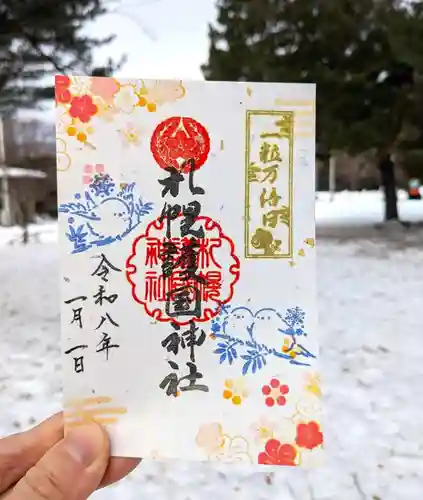 一粒万倍日
札幌護国神社
札幌護国神社
令和八年
一月一日